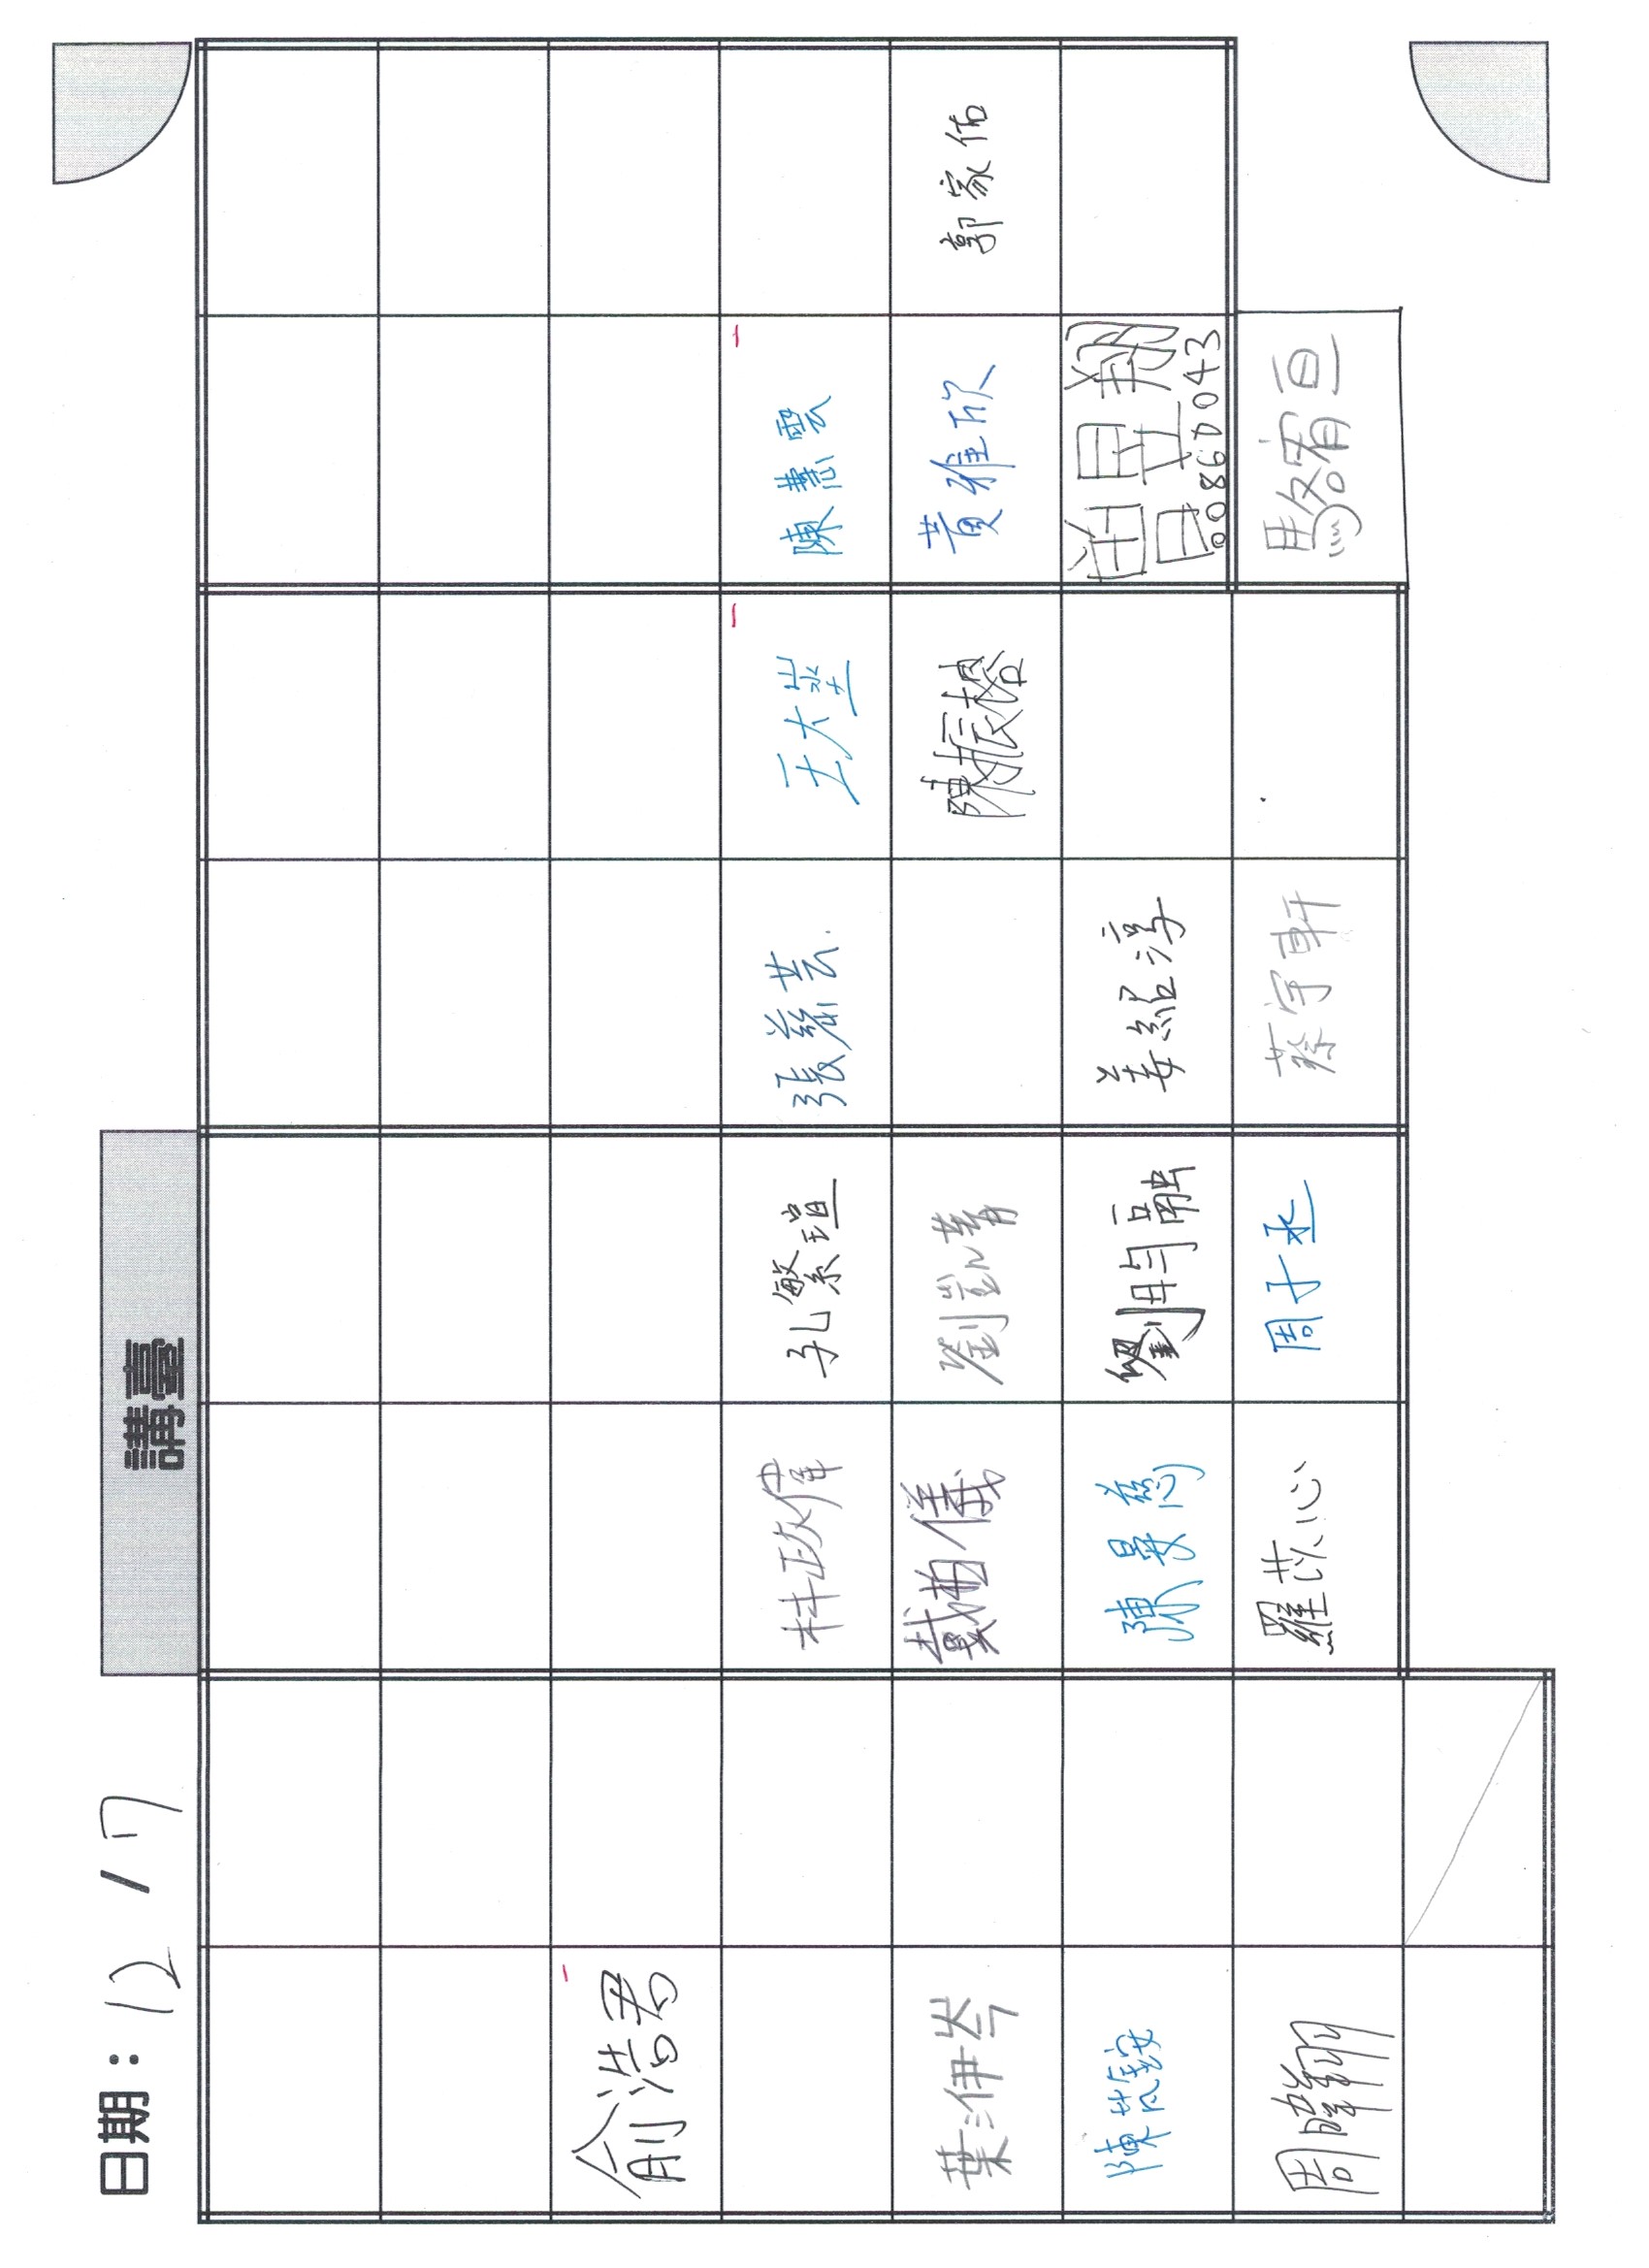 日期： 12 / 7
講臺
俞浩君
林政偉 孔繁瑄 張慈芸 王大埊 陳慧雲
葉洢岑 戴柏儀 劉凱菁 陳振榕 黃雅欣 郭家佑
陳 陳旻慈 劉昀融 姜紹淳 曾昱翔
00860043
周暐翔 羅苡心 周子丞 蔡宇軒 駱宥亘